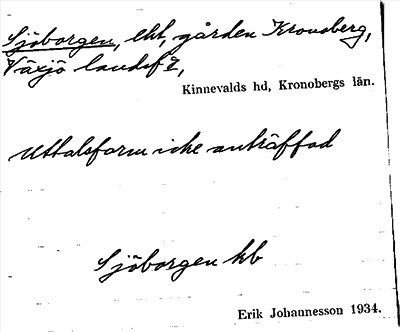 Sjöborgen, lht, gården Kronoberg,
Växjö landsf 2,
Kinnevalds hd, Kronobergs län.
Uttalsform icke anträffad
Sjöborgen kb
Erik Johannesson 1934.